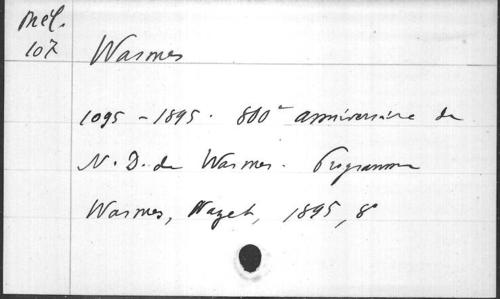 Mél.
107
Wasmes
1095-1895. 800e anniversaire de
N. D. de Wasmes. Programme
Wasmes, 1895, 8°